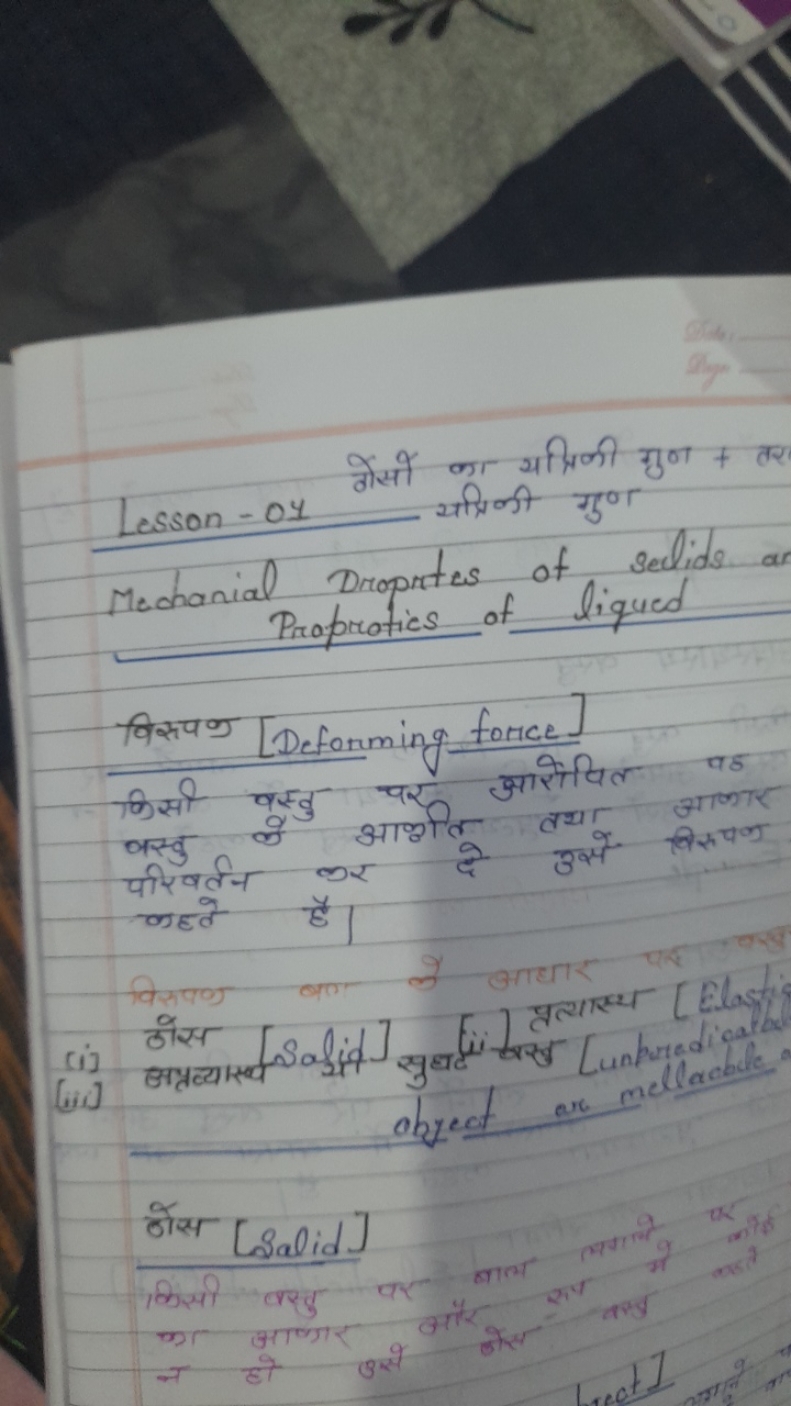 Date:
Page
ठोसों का यांत्रिकी गुण +
Lesson - 01 यांत्रिकी गुण
Mechanial Droprtes of seelids
Proprotics of liqued
विरूपण [Deforming force]
किसी वस्तु पर आरोपित वह
वस्तु के आकृति तथा आकार
परिवर्तन कर दे उसे विरूपण
कहते है।
विरूपण बल के आधार पर
(i) ठोस [Salid] [ii] प्रत्यास्थ
[iii] अप्रत्यास्थ सुघट वस्तु
object or mellacbile
ठोस [Salid]
किसी वस्तु पर बाल लगाने पर कोई
का आकार और रूप में
न हो उसे ठोस वस्तु कहते